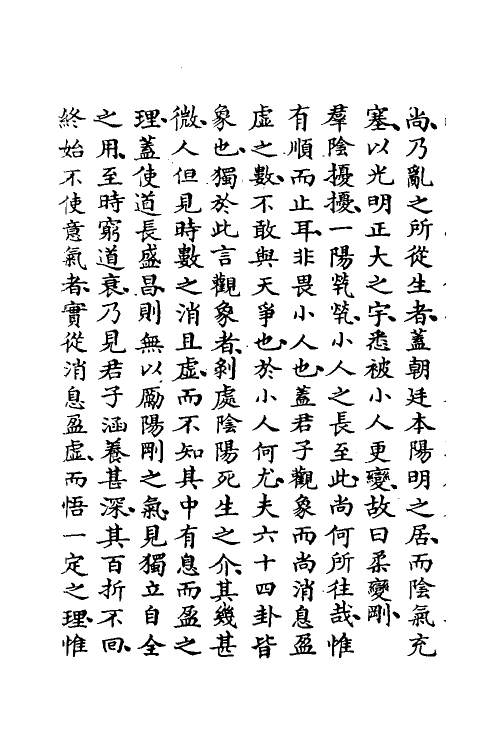 尚、乃亂之所從生者、蓋朝廷本陽明之居、而陰氣充
塞、以光明正大之宇、悉被小人更變、故曰柔變剛、
羣陰擾擾、一陽煢煢、小人之長至此、尚何所往哉、惟
有順而止耳、非畏小人也、蓋君子觀象而尚消息盈
虛之數、不敢與天爭也、於小人何尤、夫六十四卦皆
象也、獨於此言觀象者、剝處陰陽死生之介、其幾甚
微、人但見時數之消且虛、而不知其中有息而盈之
理、蓋使道長盛昌、則無以厲陽剛之氣、見獨立自全
之用、至時窮道衰、乃見君子涵養甚深、其百折不回、
終始不使意氣者、實從消息盈虛、而悟一定之理、惟